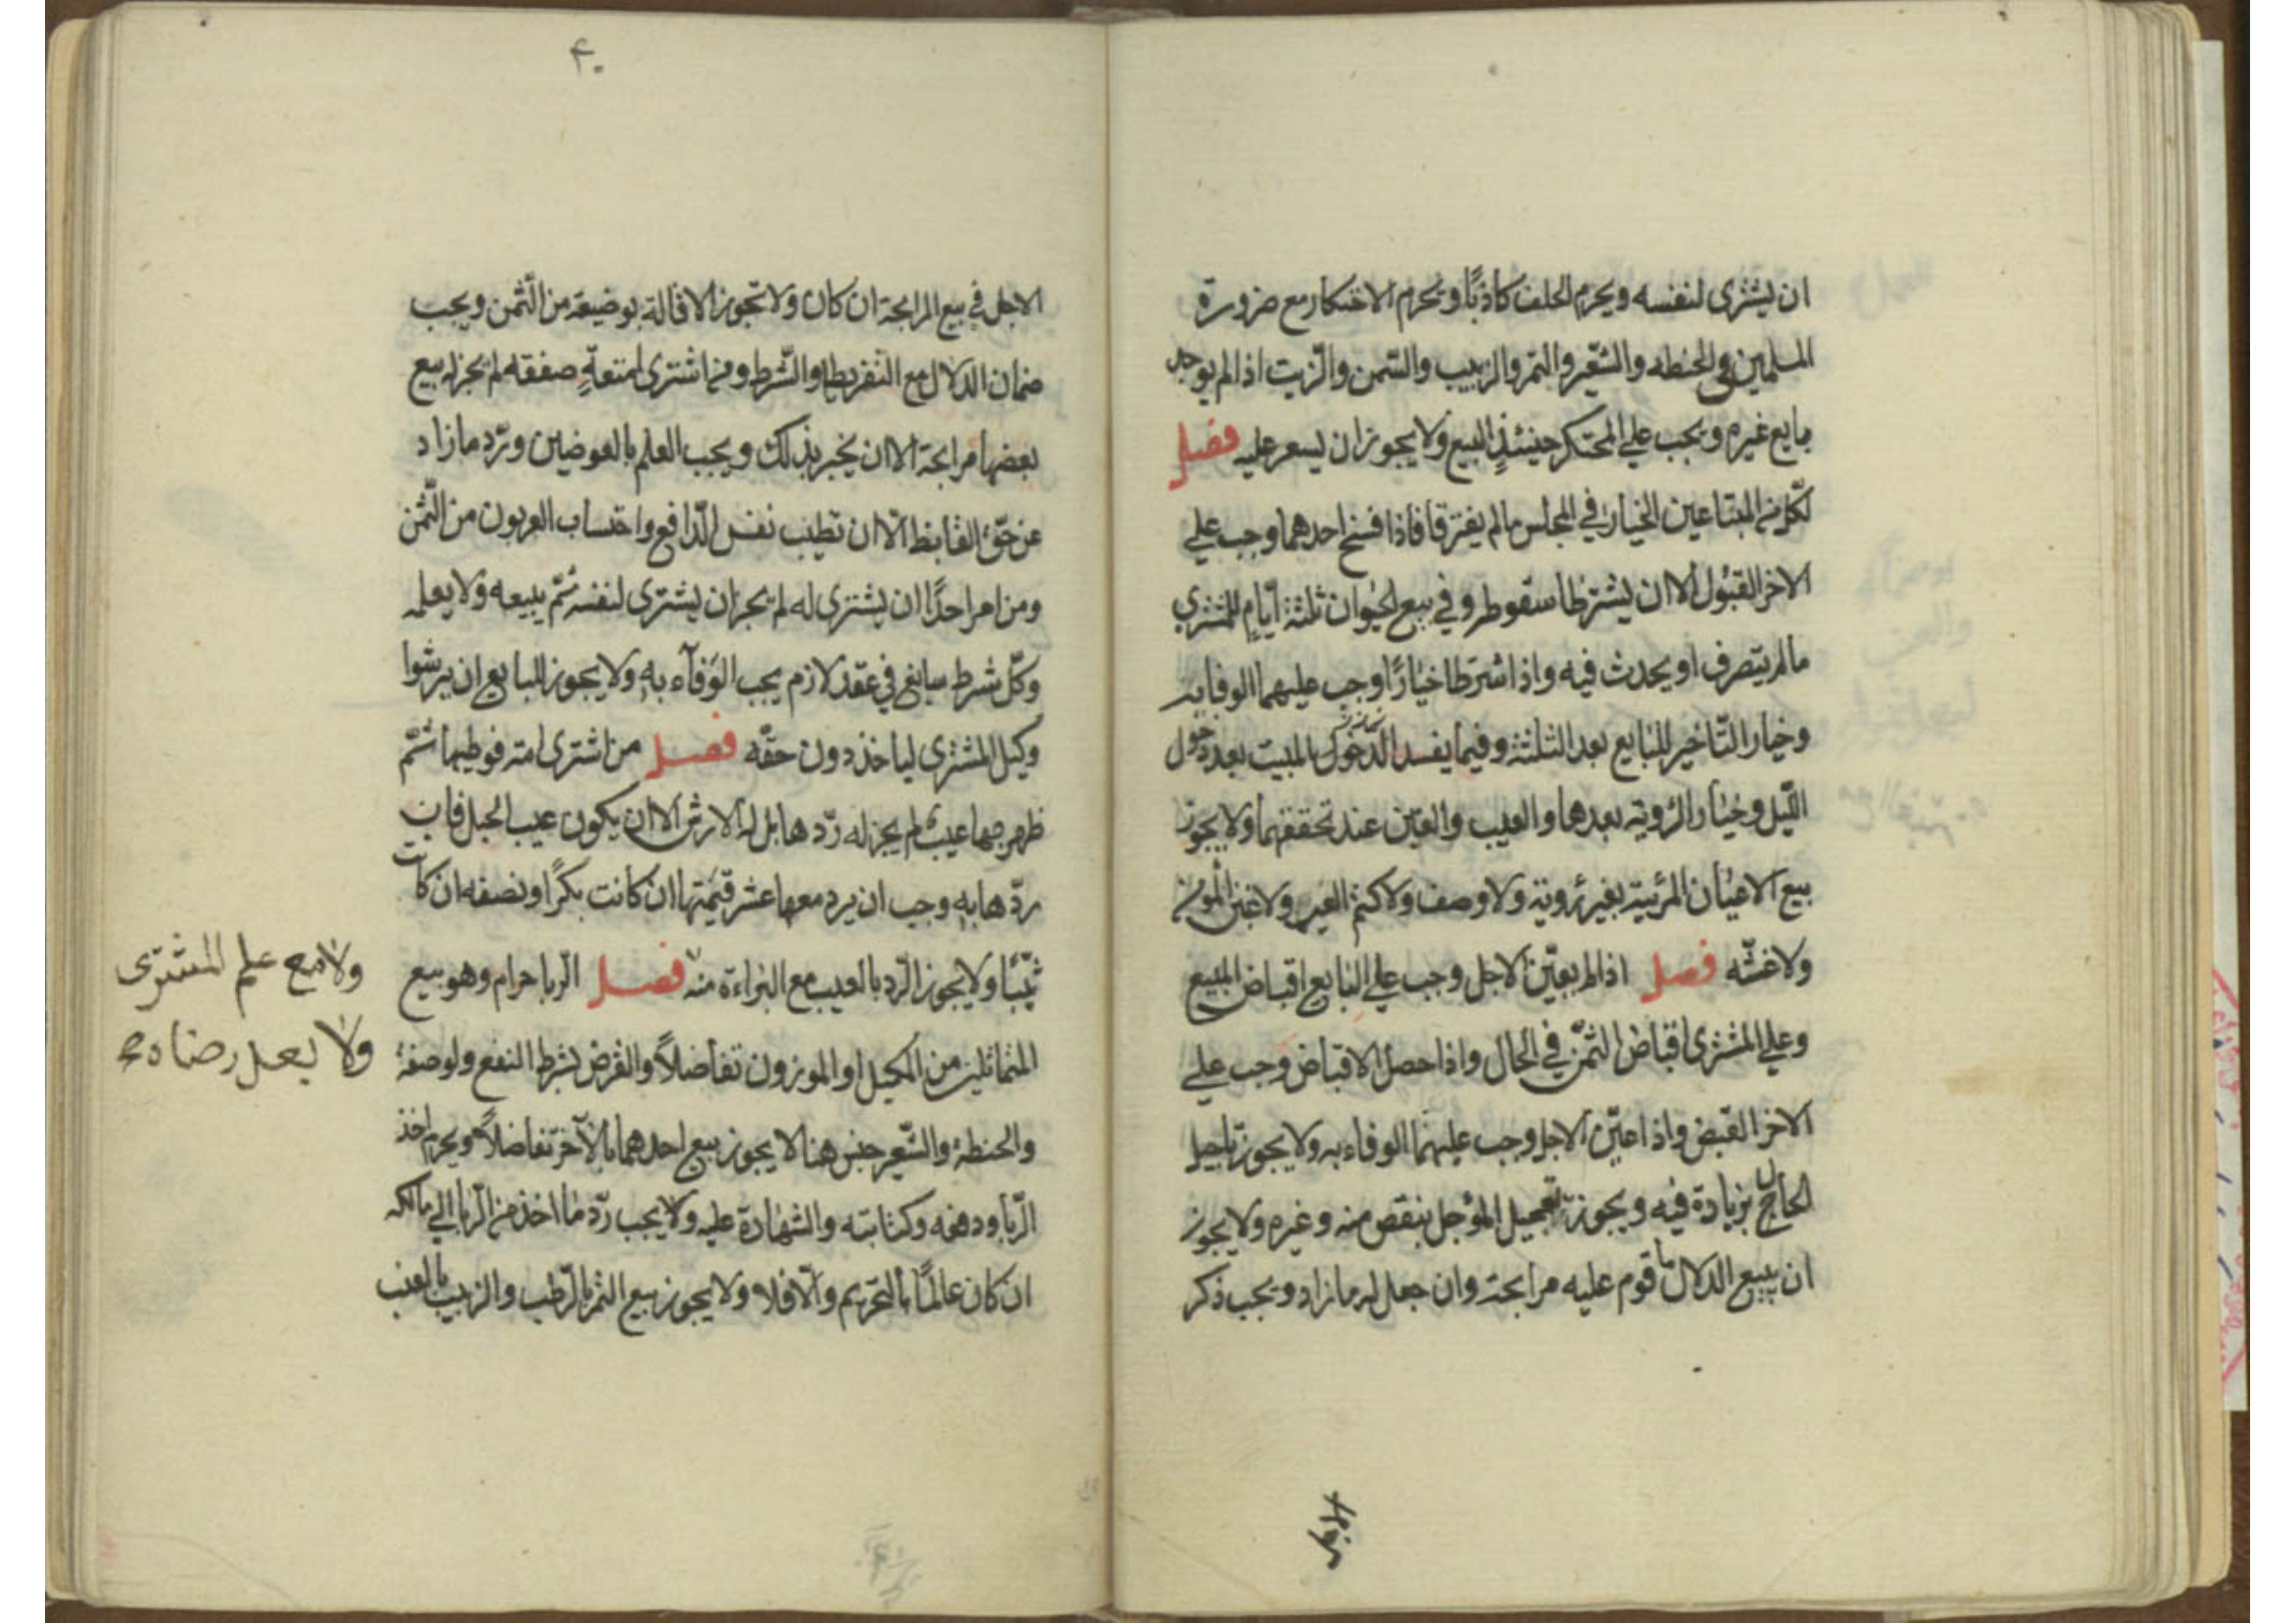 ان يشترى لنفسه ويحرم الحلف كاذبًا ويحرم الاحتكار مع ضرورة
المسلمين في الحنطه والشعير والتمر والزبيب والسّمن والزيت اذا لم يوجد
بايع غيره ويجب علي المحتكر حينئذٍ البيع ولا يجوز ان يسعر عليه فصل
لكّل من المبتاعين الخيار في المجلس مالم يفترقا فاذا فسخ احدهما وجب علي
الاخر القبول الا ان يشترطا سقوطه وفي بيع الحيوان ثلثة ايّام للمشتري
مالم يتصرف او يحدث فيه واذا اشترطا خيارًا وجب عليهما الوفا به
وخيار التّاخير للبايع بعد الثلثة وفيما يفسد بالمبيت بعد دخول
اللّيل وخيار الرؤية بعدها والعيب والغبن عند تحققهما ولا يجوز
بيع الاعيان المرئية بغير رؤية ولا وصف ولا كتم العيب ولا غبن المؤمن
ولا غشّه فصل اذا لم يعيّن الاجل وجب علي البايع اقباض المبيع
وعلي المشترى اقباض الثمّن في الحال واذا حصل الاقباض وجب علي
الاخر القبض واذا عيّن الاجل وجب عليهما الوفاء به ولا يجوز تاجيل
الحال بزيادة فيه ويجوز تعجيل المؤجل بنقص منه وغيره ولا يجوز
ان يبيع الدلال ما قوم عليه مرابحة وان جعل له مازاد ويجب ذكر
الاجل في
۴۰
الاجل في بيع المرابحة ان كان ولا تجوز الاقالة بوضيعة من الثّمن ويجب
ضمان الدلال مع التفريط او الشّرط ومن اشترى امتعةٍ صفقه لم يجز له بيع
بعضها مرابحة الا ان يخبر بذلك ويجب العلم بالعوضين وردّ مازاد
عن حقّ القابظ الّا ان تطيب نفس الدّافع واحتساب العربون من الثّمن
ومن امر احدًا ان يشترى له لم يجز ان يشترى لنفسه ثمّ يبيعه ولا يعلمه
وكلّ شرط سايغ في عقد لازم يجب الوفآء به ولا يجوز للبايع ان يرشوا
وكيل المشترى لياخذ دون حقّه فصل من اشترى امة فوطيها ثمّ
ظهر بها عيب لم يجز له ردّها بل له الارش الا ان يكون عيب الحبل فان
ردّها به وجب ان يرد معها عشر قيمتها ان كانت بكرًا ونصفه ان كانت
ثيّبًا ولا يجوز الرّد بالعيب مع البراءة منه فصل الرّبا حرام وهو بيع
ولا مع علم المشترى
ولا بعد رضاه
المتماثلين من المكيل او الموزون تفاضلاً والقرض بشرط النفع ولو صفة
والحنطة والشّعير جنس هنا لا يجوز بيع احدهما بالآخر تفاضلاً ويحرم اخذ
الرّبا ودفعه وكتابته والشهادة عليه ولا يجب ردّ ما اخذ من الرّبا الي مالكه
ان كان عالمًا بالتحريم والّا فلا ولا يجوز بيع التمر بالرّطب والزبيب بالعنب